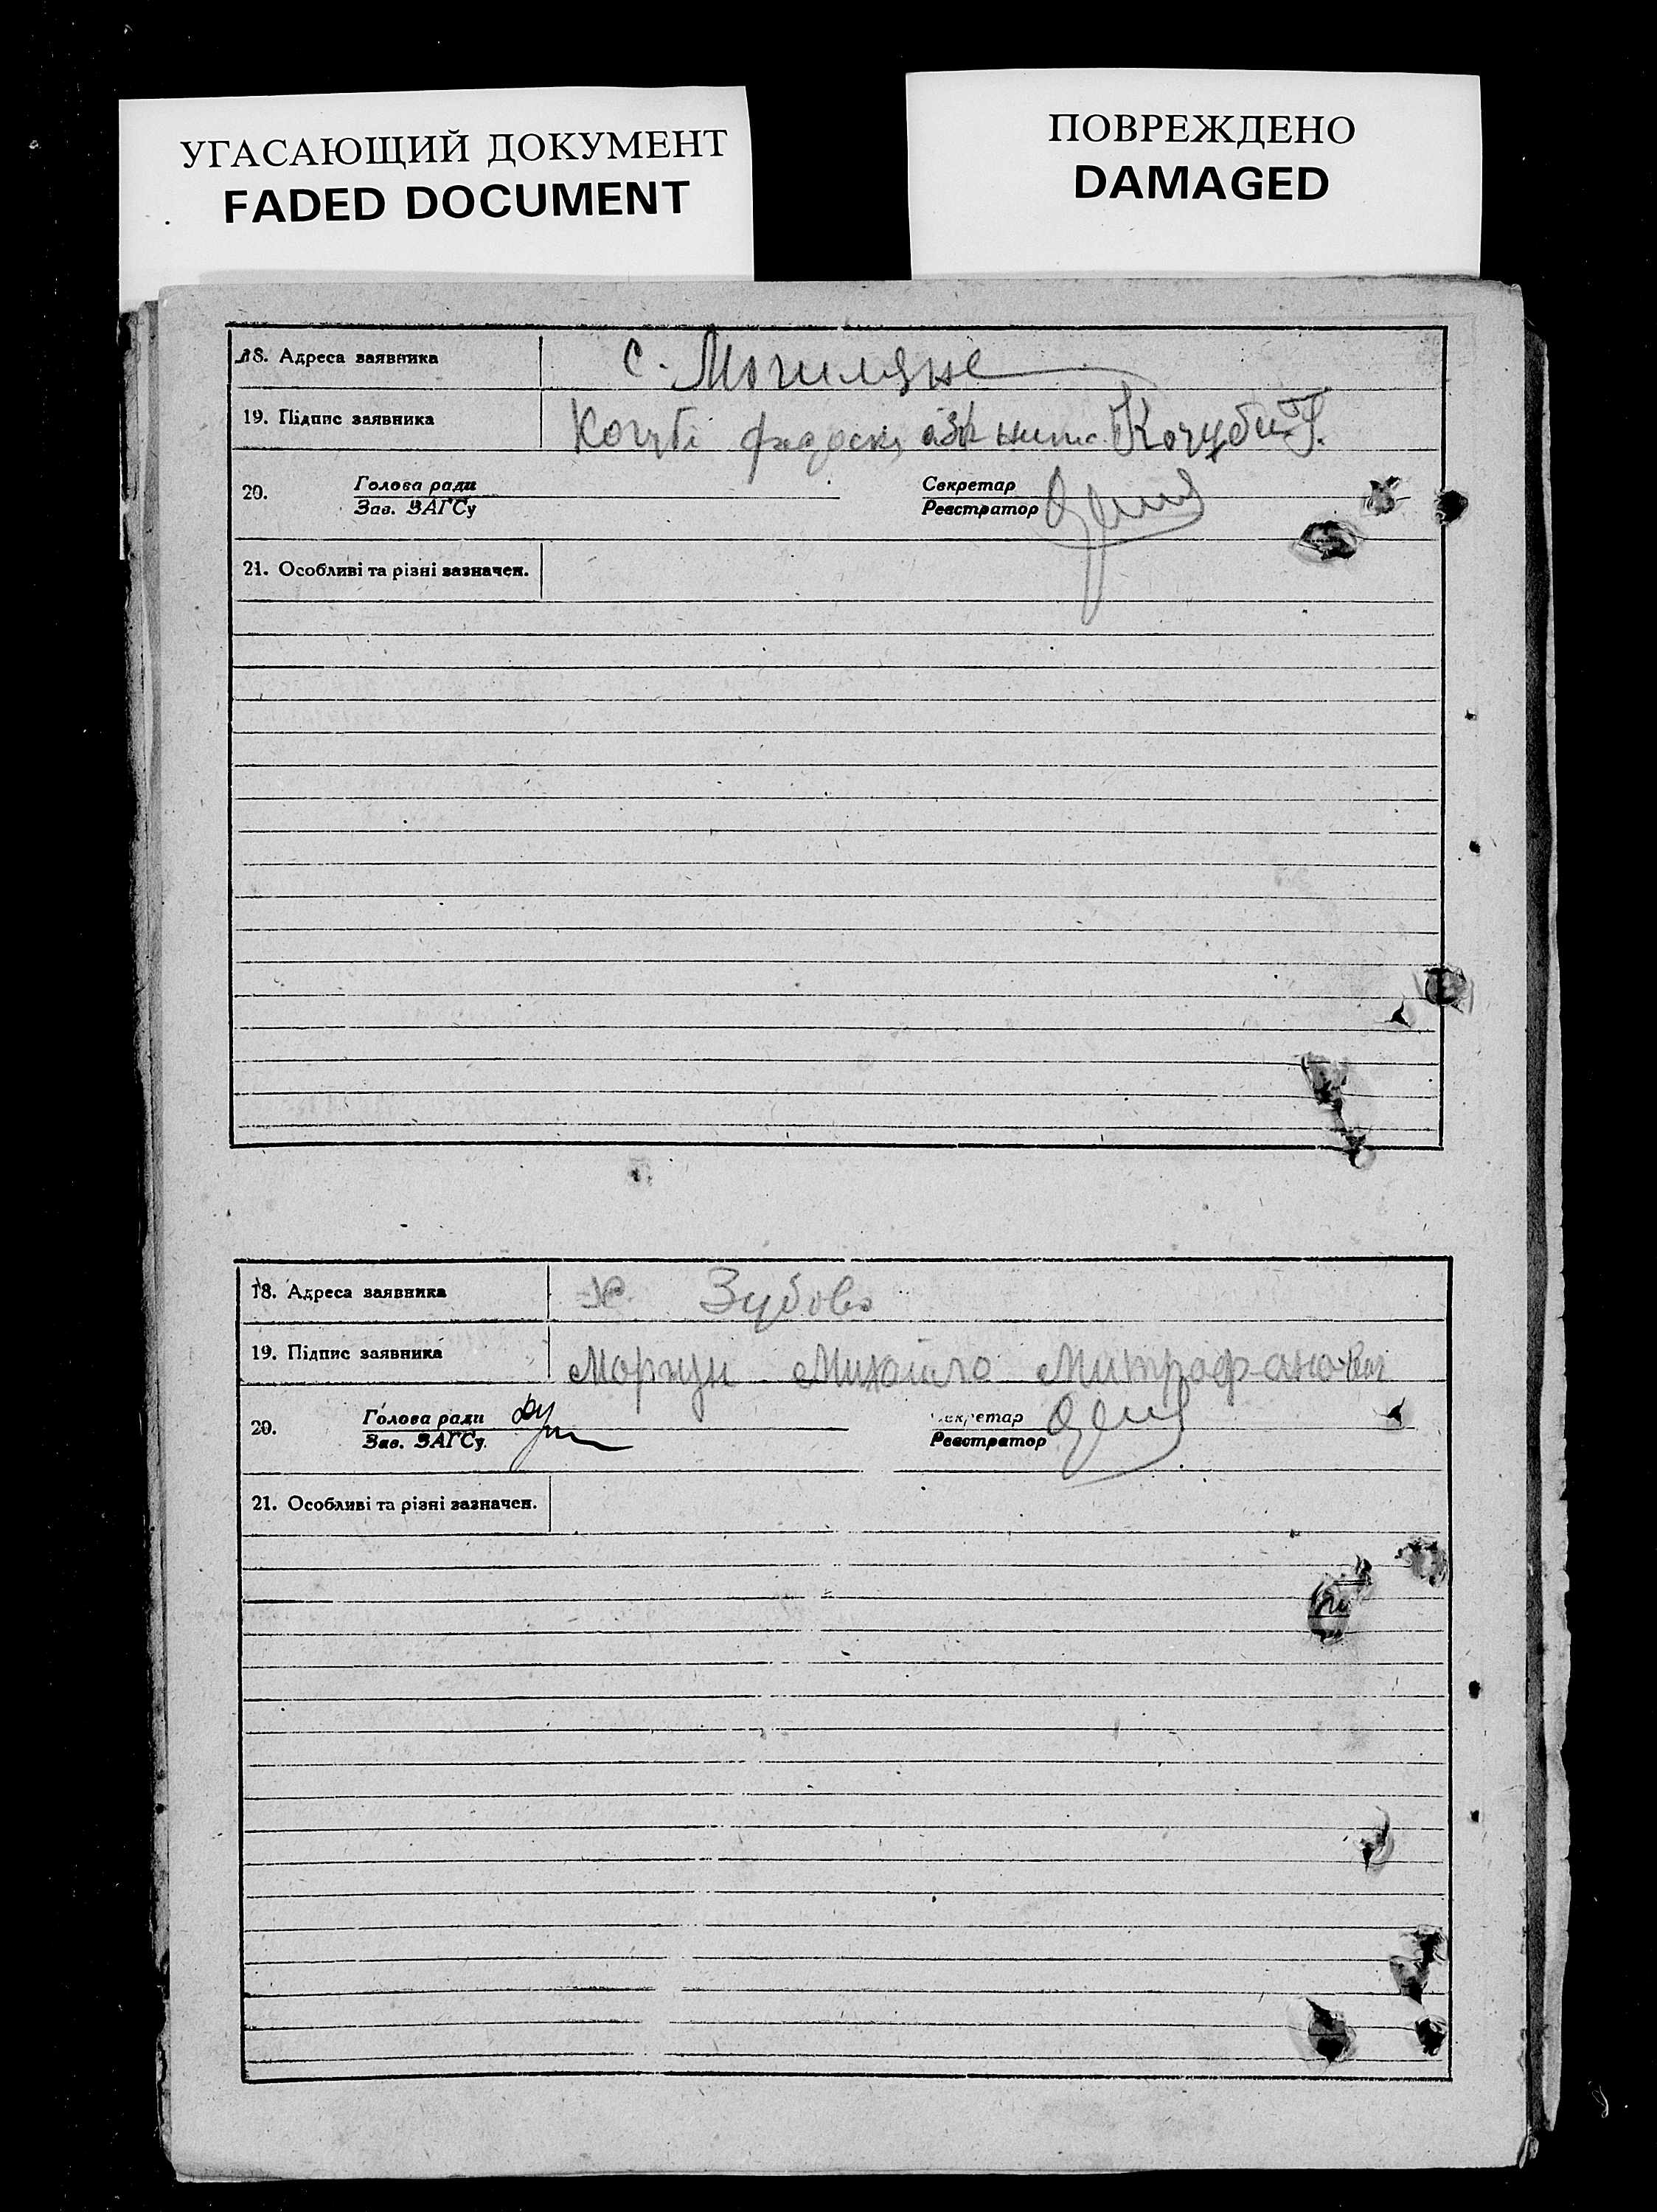 УГАСАЮЩИЙ ДОКУМЕНТ
FADED DOCUMENT
ПОВРЕЖДЕНО
DAMAGED
18. Адреса заявника с. Могиляне
19. Підпис заявника Кочубі Кочубий
20. Голова ради Секретар
Зав. ЗАГСу Реєстратор
21. Особливі та різні зазначен.
18. Адреса заявника х. Зубово
19. Підпис заявника Моргун Михайло Митрофанович
20. Голова ради Секретар
Зав. ЗАГСу Реєстратор
21. Особливі та різні зазначен.